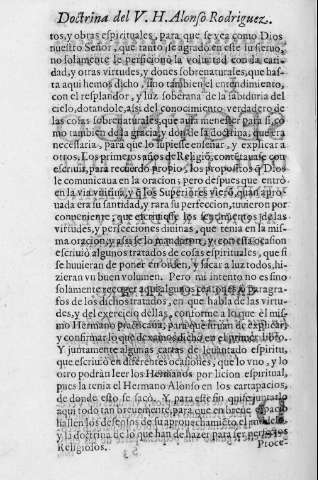 Doctrina del V. H. Alonso Rodriguez.
tos, y obras espirituales, para que se vea como Dios
nuestro Señor, que tanto se agradó en este su siervo,
no solamente le perficionò la voluntad con la cari-
dad, y otras virtudes, y dones sobrenaturales, que has-
ta aqui hemos dicho, sino tambien el entendimiento,
con el resplandor, y luz soberana de la sabiduria del
cielo, dotandole, assi del conocimiento verdadero de
las cosas sobrenaturales, que auia menester para si, co
mo tambien de la gracia, y don de la doctrina, que era
necessaria, para que lo supiesse enseñar, y explicar a
otros. Los primeros años de Religiō,
escriuia, para recuerdo propio, los propositos q̄ Dios
le comunicaua en la oracion; pero despues que entrò
en la via vnitiua, y q̄ los Superiores vierō, quan apro-
uada era su santidad, y rara su perfeccion, tuuieron por
conueniente, que escriuiesse los conceptos de las
virtudes, y perfecciones diuinas, que tenia en la mis-
ma oracion, y assi se lo mandaron, y con esta ocasion
escriuiò algunos tratados de cosas espirituales, que si
se huuieran de poner en orden, y sacar a luz todos, hi-
zieran vn buen volumen. Pero mi intento no es sino
solamente recoger aqui algunas razones, o paragra-
fos de los dichos tratados, en que habla de las virtu-
des, y del exercicio dellas, conforme a lo que el mis-
mo Hermano practicaua, para que siruan de explicar,
y confirmar lo que dexamos dicho en el primer libro.
Y juntamente algunas cartas de leuantado espiritu,
que escriuiò en diferentes ocasiones, que lo vno, y lo
otro podràn leer los Hermanos por licion espiritual,
pues la tenia el Hermano Alonso en los cartapacios,
de donde esto se sacò. Y para este fin quise juntarlo
aqui todo tan breuemente, para que en breue espacio
hallen los desseosos de su aprouechamiēto el modelo,
y la doctrina de lo que han de hazer para ser perfetos
Religiosos.
Proce-